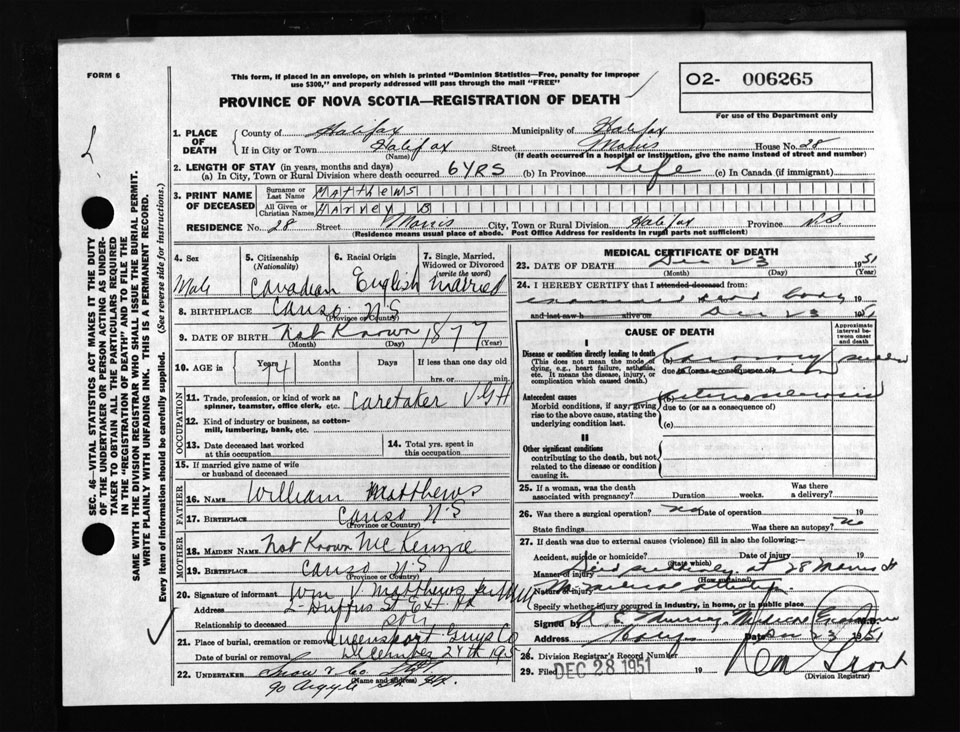 FORM 6
This form, if placed in an envelope, on which is printed "Dominion Statistics—Free, penalty for improper
use $300," and properly addressed will pass through the mail "FREE"
PROVINCE OF NOVA SCOTIA—REGISTRATION OF DEATH
02- 006265
For use of the Department only
1. PLACE OF DEATH
County of Halifax Municipality of Halifax
If in City or Town Halifax Street Morris House No. 28
(Name) (If death occurred in a hospital or institution, give the name instead of street and number)
2. LENGTH OF STAY (in years, months and days)
(a) In City, Town or Rural Division where death occurred 6 YRS (b) In Province Life (c) In Canada (if immigrant)
3. PRINT NAME OF DECEASED
Surname or Last Name Matthews
All Given or Christian Names Harvey B
RESIDENCE No. 28 Street Morris City, Town or Rural Division Halifax Province N.S.
(Residence means usual place of abode. Post Office Address for residents in rural parts not sufficient)
4. Sex
Male
5. Citizenship (Nationality)
Canadian
6. Racial Origin
English
7. Single, Married, Widowed or Divorced (write the word)
Married
8. BIRTHPLACE Canso N.S
(Province or Country)
9. DATE OF BIRTH Not Known 1877
(Month) (Day) (Year)
10. AGE in Years 74 Months Days If less than one day old
hrs. or min.
OCCUPATION
11. Trade, profession, or kind of work as spinner, teamster, office clerk, etc. Caretaker V G H
12. Kind of industry or business, as cotton-mill, lumbering, bank, etc.
13. Date deceased last worked at this occupation
14. Total yrs. spent in this occupation
15. If married give name of wife or husband of deceased
FATHER
16. NAME William Matthews
17. BIRTHPLACE Canso N.S
(Province or Country)
MOTHER
18. MAIDEN NAME Not Known McKenzie
19. BIRTHPLACE Canso N.S
(Province or Country)
20. Signature of informant Wm V Matthews
Address 2 Duffus St. Ext
Relationship to deceased son
21. Place of burial, cremation or removal Queensport Guys Co
Date of burial or removal December 24th 195
22. UNDERTAKER Snow & Co
(Name and address)
90 Argyle St
MEDICAL CERTIFICATE OF DEATH
23. DATE OF DEATH Dec 23 1951
(Month) (Day) (Year)
24. I HEREBY CERTIFY that I attended deceased from:
examined dead body 19
and last saw h alive on Dec 23 1951
CAUSE OF DEATH
Approximate interval between onset and death
I
Disease or condition directly leading to death
(This does not mean the mode of dying, e.g., heart failure, asthenia, etc. It means the disease, injury, or complication which caused death.)
(a) Coronary sudden
due to (or as a consequence of)
Antecedent causes
Morbid conditions, if any, giving rise to the above cause, stating the underlying condition last.
(b) Arteriosclerosis
due to (or as a consequence of)
(c)
II
Other significant conditions
contributing to the death, but not related to the disease or condition causing it.
25. If a woman, was the death associated with pregnancy? Duration weeks. Was there a delivery?
26. Was there a surgical operation? no Date of operation 19
State findings Was there an autopsy? no
27. If death was due to external causes (violence) fill in also the following:—
Accident, suicide or homicide? Date of injury 19
(State which)
Manner of injury Died suddenly at 28 Morris St
(How sustained)
Nature of injury No medical attendance
Specify whether injury occurred in industry, in home, or in public place
Signed by R E Murray Medical Examiner
Address Date Dec 23 1951
28. Division Registrar's Record Number
29. Filed DEC 28 1951 19
(Division Registrar)
SEC. 46—VITAL STATISTICS ACT MAKES IT THE DUTY
OF THE UNDERTAKER OR PERSON ACTING AS UNDER-
TAKER TO OBTAIN ALL THE PARTICULARS REQUIRED
IN THE "REGISTRATION OF DEATH" AND TO FILE THE
SAME WITH THE DIVISION REGISTRAR WHO SHALL ISSUE THE BURIAL PERMIT.
WRITE PLAINLY WITH UNFADING INK. THIS IS A PERMANENT RECORD.
Every item of information should be carefully supplied. (See reverse side for instructions.)